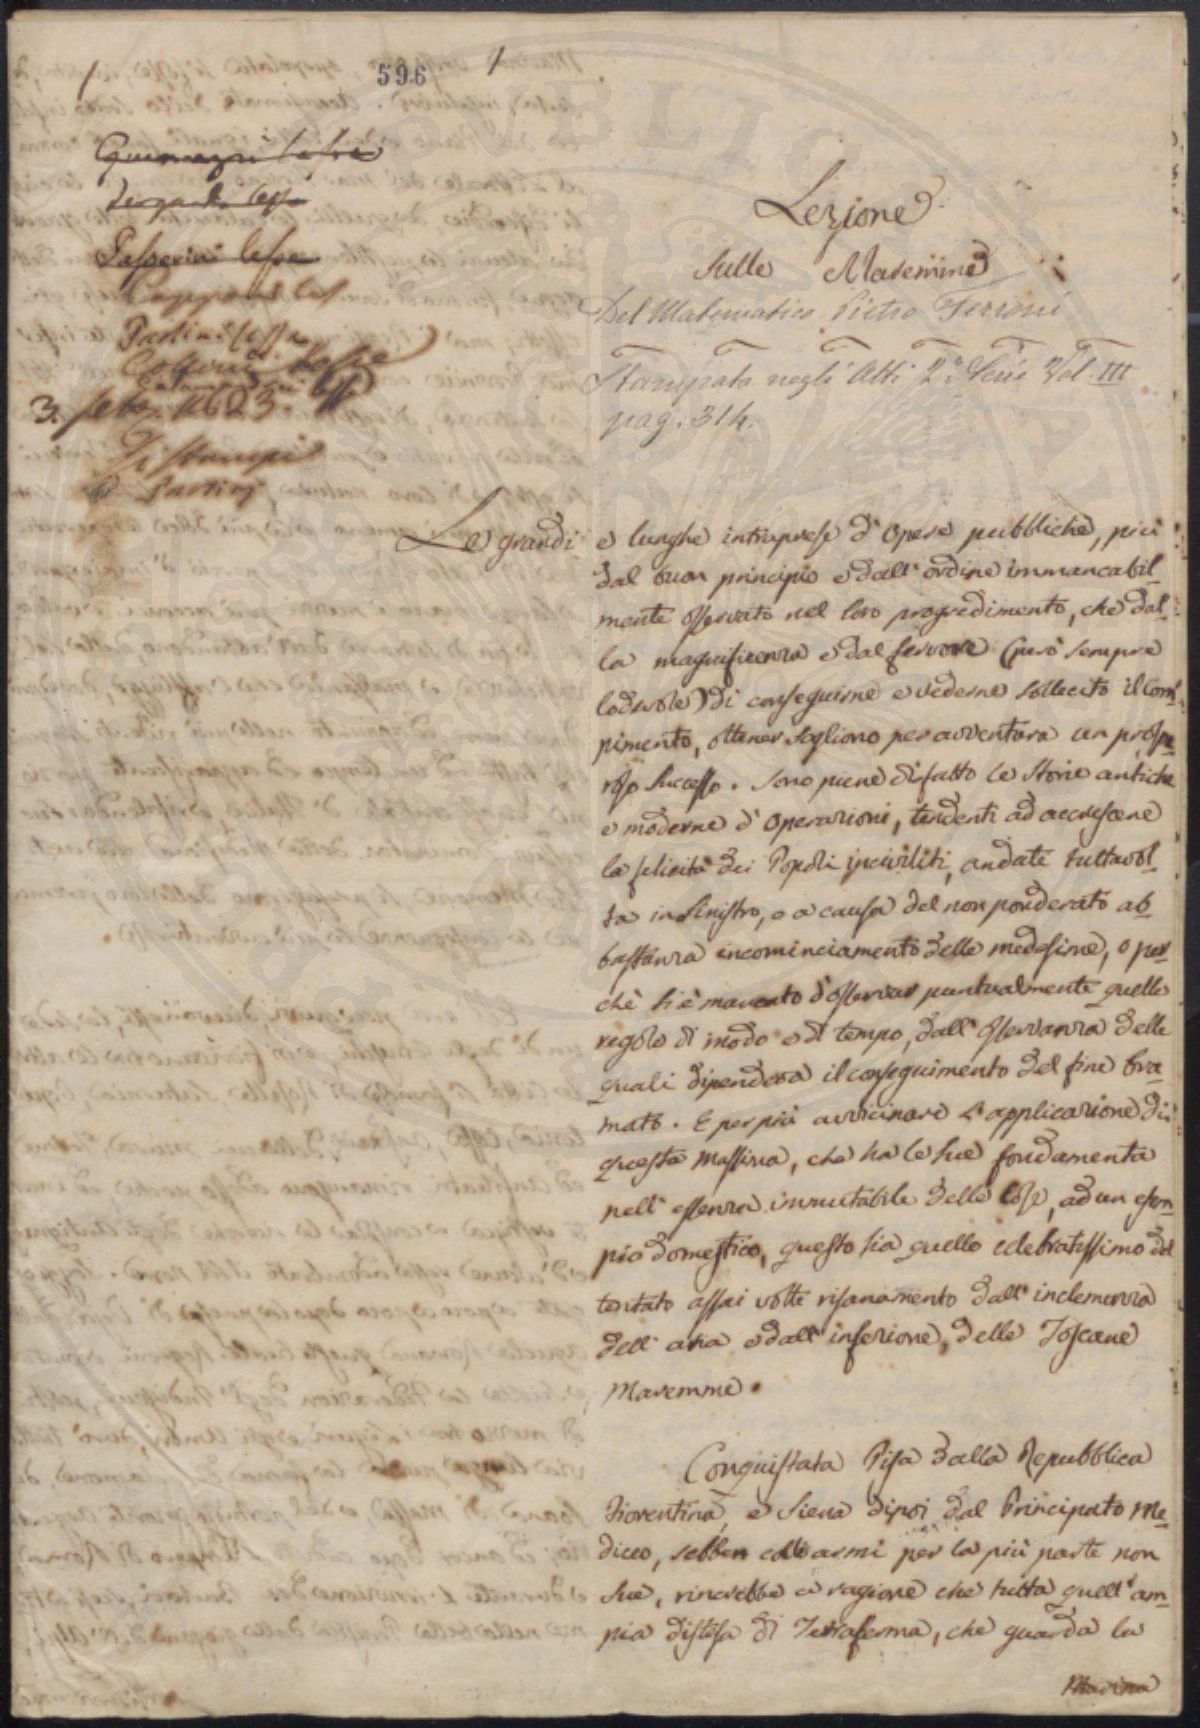 596
Lezione
sulle Maremme
Del Matematico Pietro Ferroni
Stampata negli Atti 2ª. Serie Vol. III
pag. 314.
Passerini lesse
lesse
3. febb.
Si stampi
Le grandi e lunghe intraprese d' Opere pubbliche, più
dal buon principio e dall' ordine immancabil-
mente osservato nel loro progredimento, che dal-
la magnificenza e dal fervore (però sempre
lodevole) di conseguirne e vederne sollecito il com-
pimento, ottener sogliono per avventura un prospe-
roso successo. Sono piene di fatto le Storie antiche
e moderne d' Operazioni, tendenti ad accrescere
la felicità dei Popoli inciviliti, andate tuttavol-
ta in sinistro, o a causa del non ponderato ab-
bastanza incominciamento delle medesime, o per-
chè si è mancato d'osservar puntualmente quelle
regole di modo e di tempo, dall' osservanza delle
quali dipendeva il conseguimento del fine bra-
mato. E per più avvicinare l' applicazione di
questa Massima, che ha le sue fondamenta
nell' essenza immutabile delle cose, ad un esem-
pio domestico, questo sia quello celebratissimo del
tentato assai volte risanamento dall' inclemenza
dell' aria e dall' infezione, delle Toscane
Maremme.
Conquistata Pisa dalla Repubblica
Fiorentina, e Siena dipoi dal Principato Me-
diceo, sebben coll' armi per la più parte non
sue, rincrebbe a ragione che tutta quell' am-
pia distesa di Terraferma, che guarda la
Marina